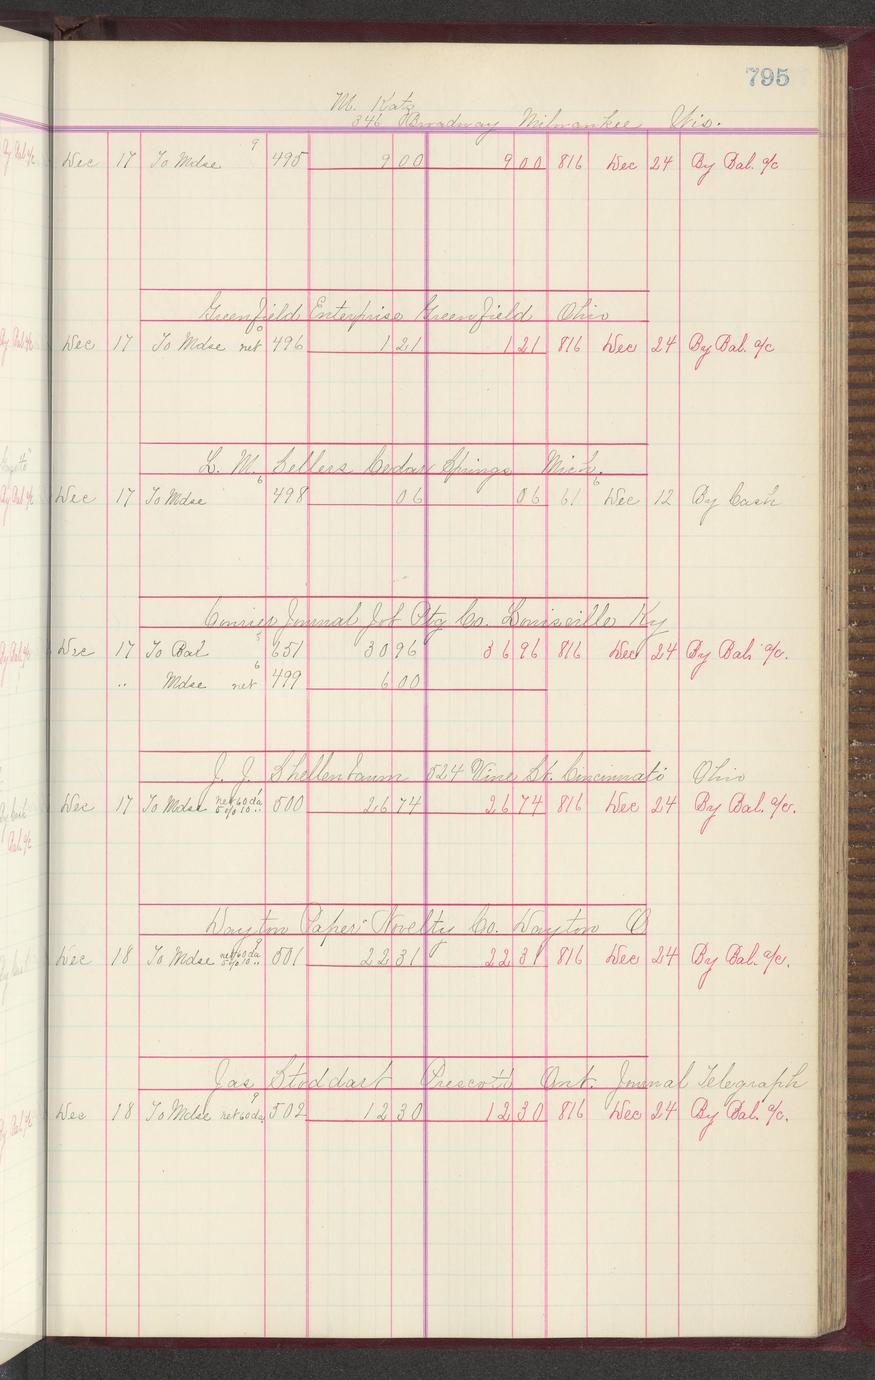 795
M. Katz
346 Broadway Milwaukee Wis.
Dec 17 To Mdse 9 495 9 00 9 00 816 Dec 24 By Bal. a/c
Greenfield Enterprise Greenfield Ohio
Dec 17 To Mdse net 0 496 1 21 1 21 816 Dec 24 By Bal. a/c
L. M. Sellers Cedar Springs Mich.
Dec 17 To Mdse 6 498 06 06 61 6 Dec 12 By Cash
Courier Journal Job Ptg Co. Louisville Ky
Dec 17 To Bal 5 651 30 96 36 96 816 Dec 24 By Bal. a/c.
" Mdse net 6 499 6 00
J. J. Shellenbaum 524 Vine St. Cincinnati Ohio
Dec 17 To Mdse net 60 da 5% 10 " 500 26 74 26 74 816 Dec 24 By Bal. a/c.
Dayton Paper Novelty Co. Dayton O
Dec 18 To Mdse net 60 da 5% 10 " 9 501 22 31 22 31 816 Dec 24 By Bal. a/c.
Jas Stoddart Prescott Ont. Journal Telegraph
Dec 18 To Mdse net 60 da 9 502 12 30 12 30 816 Dec 24 By Bal. a/c.